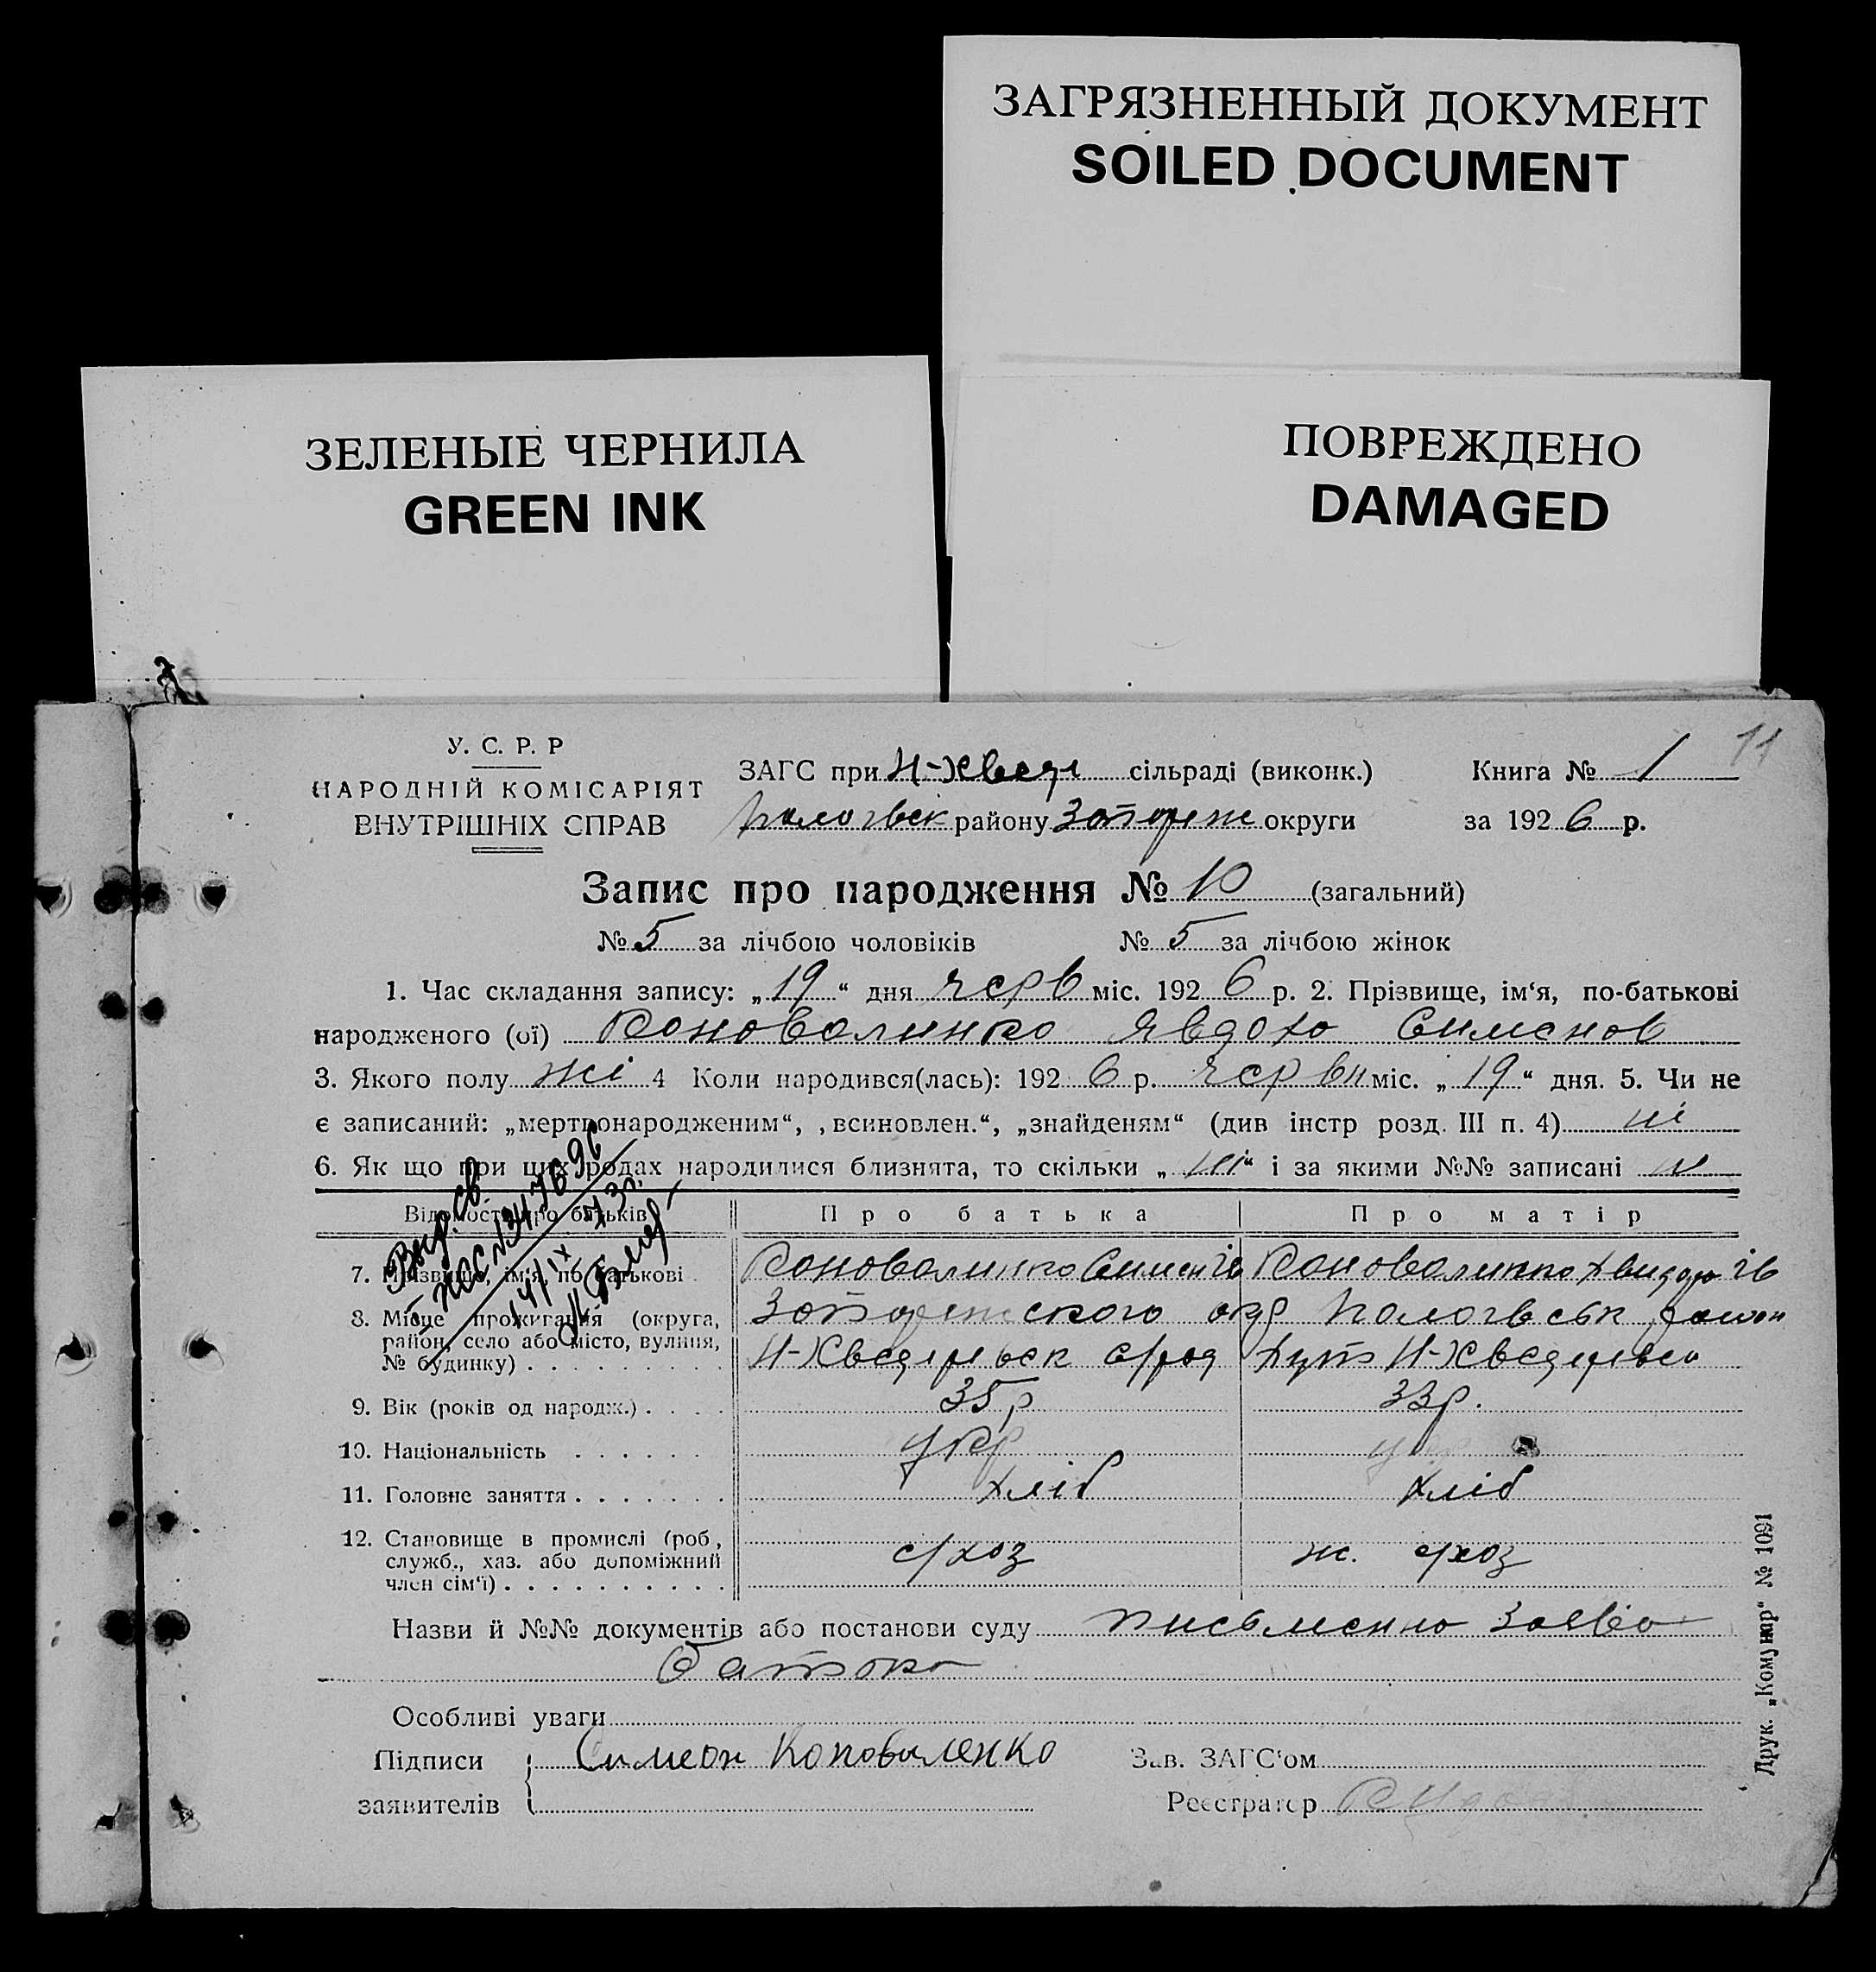 ЗАГРЯЗНЕННЫЙ ДОКУМЕНТ
SOILED DOCUMENT
ЗЕЛЕНЫЕ ЧЕРНИЛА
GREEN INK
ПОВРЕЖДЕНО
DAMAGED
11
У. С. Р. Р
НАРОДНІЙ КОМІСАРІЯТ
ВНУТРІШНІХ СПРАВ
ЗАГС при Н-Хведя сільраді (виконк.)
Пологвск району Запоріж округи
Книга № 1
за 1926 р.
Запис про народження № 10 (загальний)
№ 5 за лічбою чоловіків № 5 за лічбою жінок
1. Час складання запису: „19“ дня черв міс. 1926 р. 2. Прізвище, ім‘я, по-батькові
народженого (ої) Коноваленко Явдоха Сименов
3. Якого полу жі 4 Коли народився(лась): 1926 р. червн міс. „19“ дня. 5. Чи не
є записаний: „мертвонародженим“, „всиновлен.“, „знайденям“ (див інстр розд. III п. 4) ні
6. Як що при цих родах народилися близнята, то скільки „ні“ і за якими №№ записані ні
Відомості про батьків Про батька Про матір
7. Прізвище, ім‘я, по батькові Коноваленко Сименів Коноваленко
8. Місце проживання (округа, район, село або місто, вулиця, № будинку)
Запорожского окр Пологвськ район
Н-Хведерівск с/рад хут Н-Хведерівка
9. Вік (років од народж.) 35 р 33 р.
10. Національність укр укр
11. Головне заняття хліб хліб
12. Становище в промислі (роб, служб., хаз. або допоміжний член сім‘ї) с/хоз ж. с/хоз
Назви й №№ документів або постанови суду письменно заява
батька
Особливі уваги
Підписи заявителів Симеон Коноваленко
Зав. ЗАГС‘ом
Реєстратор
Друк. „Комунар“ № 1091